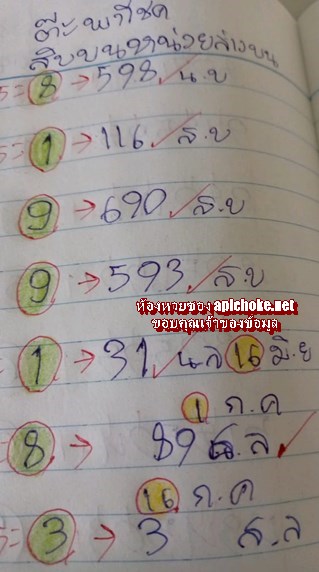 ต๊ะพาโชค
สิบบนหน่วยล่างบน
5= 8 → 598 ✓ น.บ
5= 1 → 116 ✓ ส.บ
9 → 690 ✓ ส.บ
9 → 593 ✓ ส.บ
ห้องหวยของ apichoke.net
ขอบคุณเจ้าของข้อมูล
= 1 → 31 ✓ น.ล 16 มิ.ย
1 ก.ค
= 8 → 89 .ล ✓
16 ก.ค
5= 3 → 3 ส.ล